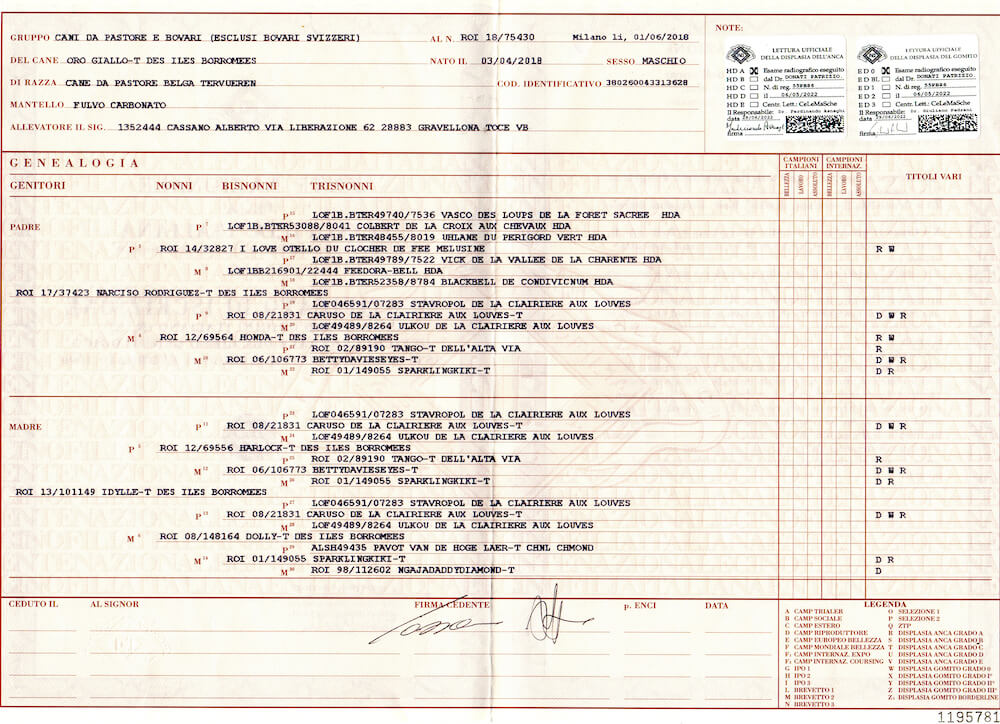 GRUPPO CANI DA PASTORE E BOVARI (ESCLUSI BOVARI SVIZZERI) AL N. ROI 18/75430 Milano li, 01/06/2018
DEL CANE ORO GIALLO-T DES ILES BORROMEES NATO IL 03/04/2018 SESSO MASCHIO
DI RAZZA CANE DA PASTORE BELGA TERVUEREN COD. IDENTIFICATIVO 380260043313628
MANTELLO FULVO CARBONATO
ALLEVATORE IL SIG. 1352444 CASSANO ALBERTO VIA LIBERAZIONE 62 28883 GRAVELLONA TOCE VB
NOTE:
LETTURA UFFICIALE
DELLA DISPLASIA DELL'ANCA
HD A X Esame radiografico eseguito
HD B dal Dr. DONATI PATRIZIO
HD C N. di reg. 55PR86
HD D il 06/05/2022
HD E Centr. Lett.: CeLeMaSche
Il Responsabile: Dr. Ferdinando Asnaghi
data
firma
LETTURA UFFICIALE
DELLA DISPLASIA DEL GOMITO
ED 0 X Esame radiografico eseguito
ED BL dal Dr. DONATI PATRIZIO
ED 1 N. di reg. 55PR86
ED 2 il 06/05/2022
ED 3 Centr. Lett.: CeLeMaSche
Il Responsabile: Dr. Giuliano Pedrani
data
firma
GENEALOGIA
GENITORI NONNI BISNONNI TRISNONNI
CAMPIONI ITALIANI CAMPIONI INTERNAZ.
BELLEZZA LAVORO ASSOLUTO BELLEZZA LAVORO ASSOLUTO
TITOLI VARI
P 15 LOF1B.BTER49740/7536 VASCO DES LOUPS DE LA FORET SACREE HDA
PADRE P 7 LOF1B.BTER53088/8041 COLBERT DE LA CROIX AUX CHEVAUX HDA
M 16 LOF1B.BTER48455/8019 UHLANE DU PERIGORD VERT HDA
P 3 ROI 14/32827 I LOVE OTELLO DU CLOCHER DE FEE MELUSINE R W
P 17 LOF1B.BTER49789/7522 VICK DE LA VALLEE DE LA CHARENTE HDA
M 8 LOF1BB216901/22444 FEEDORA-BELL HDA
M 18 LOF1B.BTER52358/8784 BLACKBELL DE CONDIVICNUM HDA
ROI 17/37423 NARCISO RODRIGUEZ-T DES ILES BORROMEES
P 19 LOF046591/07283 STAVROPOL DE LA CLAIRIERE AUX LOUVES
P 9 ROI 08/21831 CARUSO DE LA CLAIRIERE AUX LOUVES-T D W R
M 20 LOF49489/8264 ULKOU DE LA CLAIRIERE AUX LOUVES
M 4 ROI 12/69564 HONDA-T DES ILES BORROMEES R W
P 21 ROI 02/89190 TANGO-T DELL'ALTA VIA R
M 10 ROI 06/106773 BETTYDAVIESEYES-T D W R
M 22 ROI 01/149055 SPARKLINGKIKI-T D R
P 23 LOF046591/07283 STAVROPOL DE LA CLAIRIERE AUX LOUVES
MADRE P 11 ROI 08/21831 CARUSO DE LA CLAIRIERE AUX LOUVES-T D W R
M 24 LOF49489/8264 ULKOU DE LA CLAIRIERE AUX LOUVES
P 5 ROI 12/69556 HARLOCK-T DES ILES BORROMEES
P 25 ROI 02/89190 TANGO-T DELL'ALTA VIA R
M 12 ROI 06/106773 BETTYDAVIESEYES-T D W R
M 26 ROI 01/149055 SPARKLINGKIKI-T D R
ROI 13/101149 IDYLLE-T DES ILES BORROMEES
P 27 LOF046591/07283 STAVROPOL DE LA CLAIRIERE AUX LOUVES
P 13 ROI 08/21831 CARUSO DE LA CLAIRIERE AUX LOUVES-T D W R
M 28 LOF49489/8264 ULKOU DE LA CLAIRIERE AUX LOUVES
M 6 ROI 08/148164 DOLLY-T DES ILES BORROMEES
P 29 ALSH49435 PAVOT VAN DE HOGE LAER-T CHNL CHMOND
M 14 ROI 01/149055 SPARKLINGKIKI-T D R
M 30 ROI 98/112602 NGAJADADDYDIAMOND-T D
CEDUTO IL AL SIGNOR FIRMA CEDENTE p. ENCI DATA
LEGENDA
A CAMP TRIALER O SELEZIONE 1
B CAMP SOCIALE P SELEZIONE 2
C CAMP ESTERO Q ZTP
D CAMP RIPRODUTTORE R DISPLASIA ANCA GRADO A
E CAMP EUROPEO BELLEZZA S DISPLASIA ANCA GRADO B
F CAMP MONDIALE BELLEZZA T DISPLASIA ANCA GRADO C
F1 CAMP INTERNAZ. EXPO U DISPLASIA ANCA GRADO D
F2 CAMP INTERNAZ. COURSING V DISPLASIA ANCA GRADO E
G IPO 1 W DISPLASIA GOMITO GRADO 0
H IPO 2 X DISPLASIA GOMITO GRADO I°
I IPO 3 Y DISPLASIA GOMITO GRADO II°
L BREVETTO 1 Z DISPLASIA GOMITO GRADO III°
M BREVETTO 2 Z1 DISPLASIA GOMITO BORDERLINE
N BREVETTO 3
1195781